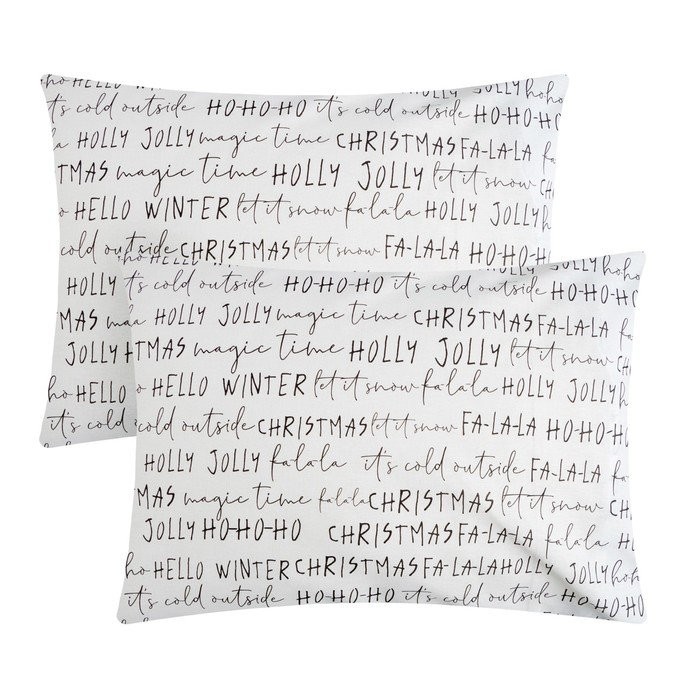 ho HELLO JOLLY hoho
it's cold outside HO-HO-HO it's cold outside HO-HO-H
HOLLY JOLLY magic time CHRISTMAS FA-LA-LA fa
TMAS magic time HOLLY JOLLY let it snow CH
o HELLO WINTER let it snow falala HOLLY JOLLY h
cold outside CHRISTMAS let it snow FA-LA-LA HO-HO-H
HOLLY
MAS ma
JOLLY H
ho HELLO
it's cold
ho HELLO JOLLY hoho
it's cold outside HO-HO-HO it's cold outside HO-HO-H
a HOLLY JOLLY magic time CHRISTMAS FA-LA-LA fa
TMAS magic time HOLLY JOLLY let it snow CH
o HELLO WINTER let it snow falala HOLLY JOLLY h
cold outside CHRISTMAS let it snow FA-LA-LA HO-HO-H
HOLLY JOLLY falala it's cold outside FA-LA-LA
MAS magic time falala CHRISTMAS let it snow CH
JOLLY HO-HO-HO CHRISTMAS FA-LA-LA falala HO
ho HELLO WINTER CHRISTMAS FA-LA-LA HOLLY JOLLY hoho
it's cold outside HO-HO-HO it's cold outside HO-HO-HO